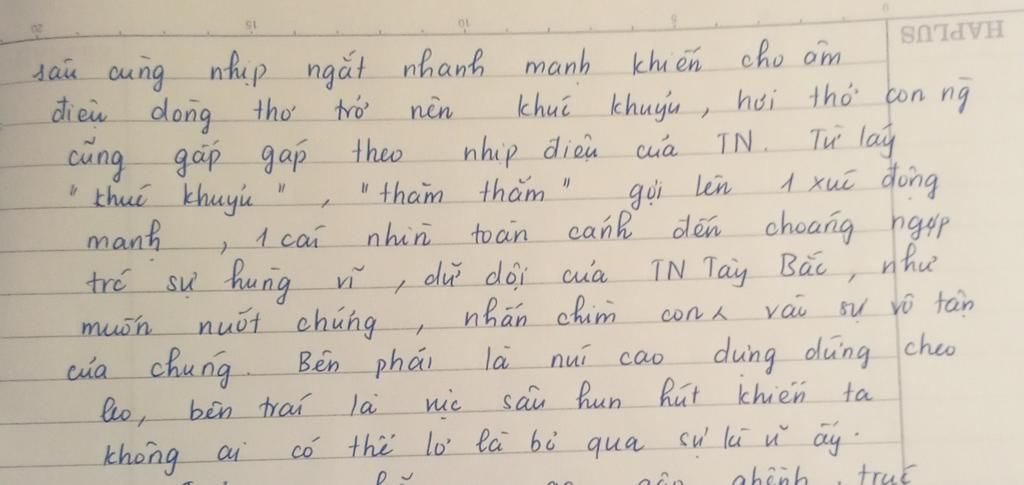 HAPLUS
20 15 10 5 0
sâu cùng nhịp ngắt nhanh mạnh khiến cho âm
điệu dòng thơ trở nên khúc khuỷu, hơi thở con ng
cũng gấp gáp theo nhịp điệu của TN. Từ láy
"khúc khuỷu", "thăm thẳm" gợi lên 1 xúc động
mạnh, 1 cái nhìn toàn cảnh đến choáng ngợp
trc sự hùng vĩ, dữ dội của TN Tây Bắc, như
muốn nuốt chửng, nhấn chìm con vào sự vô tận
của chúng. Bên phải là núi cao dựng đứng cheo
leo, bên trái là vực sâu hun hút khiến ta
không ai có thể lơ là bỏ qua sự kì vĩ ấy.
ghềnh, trúc